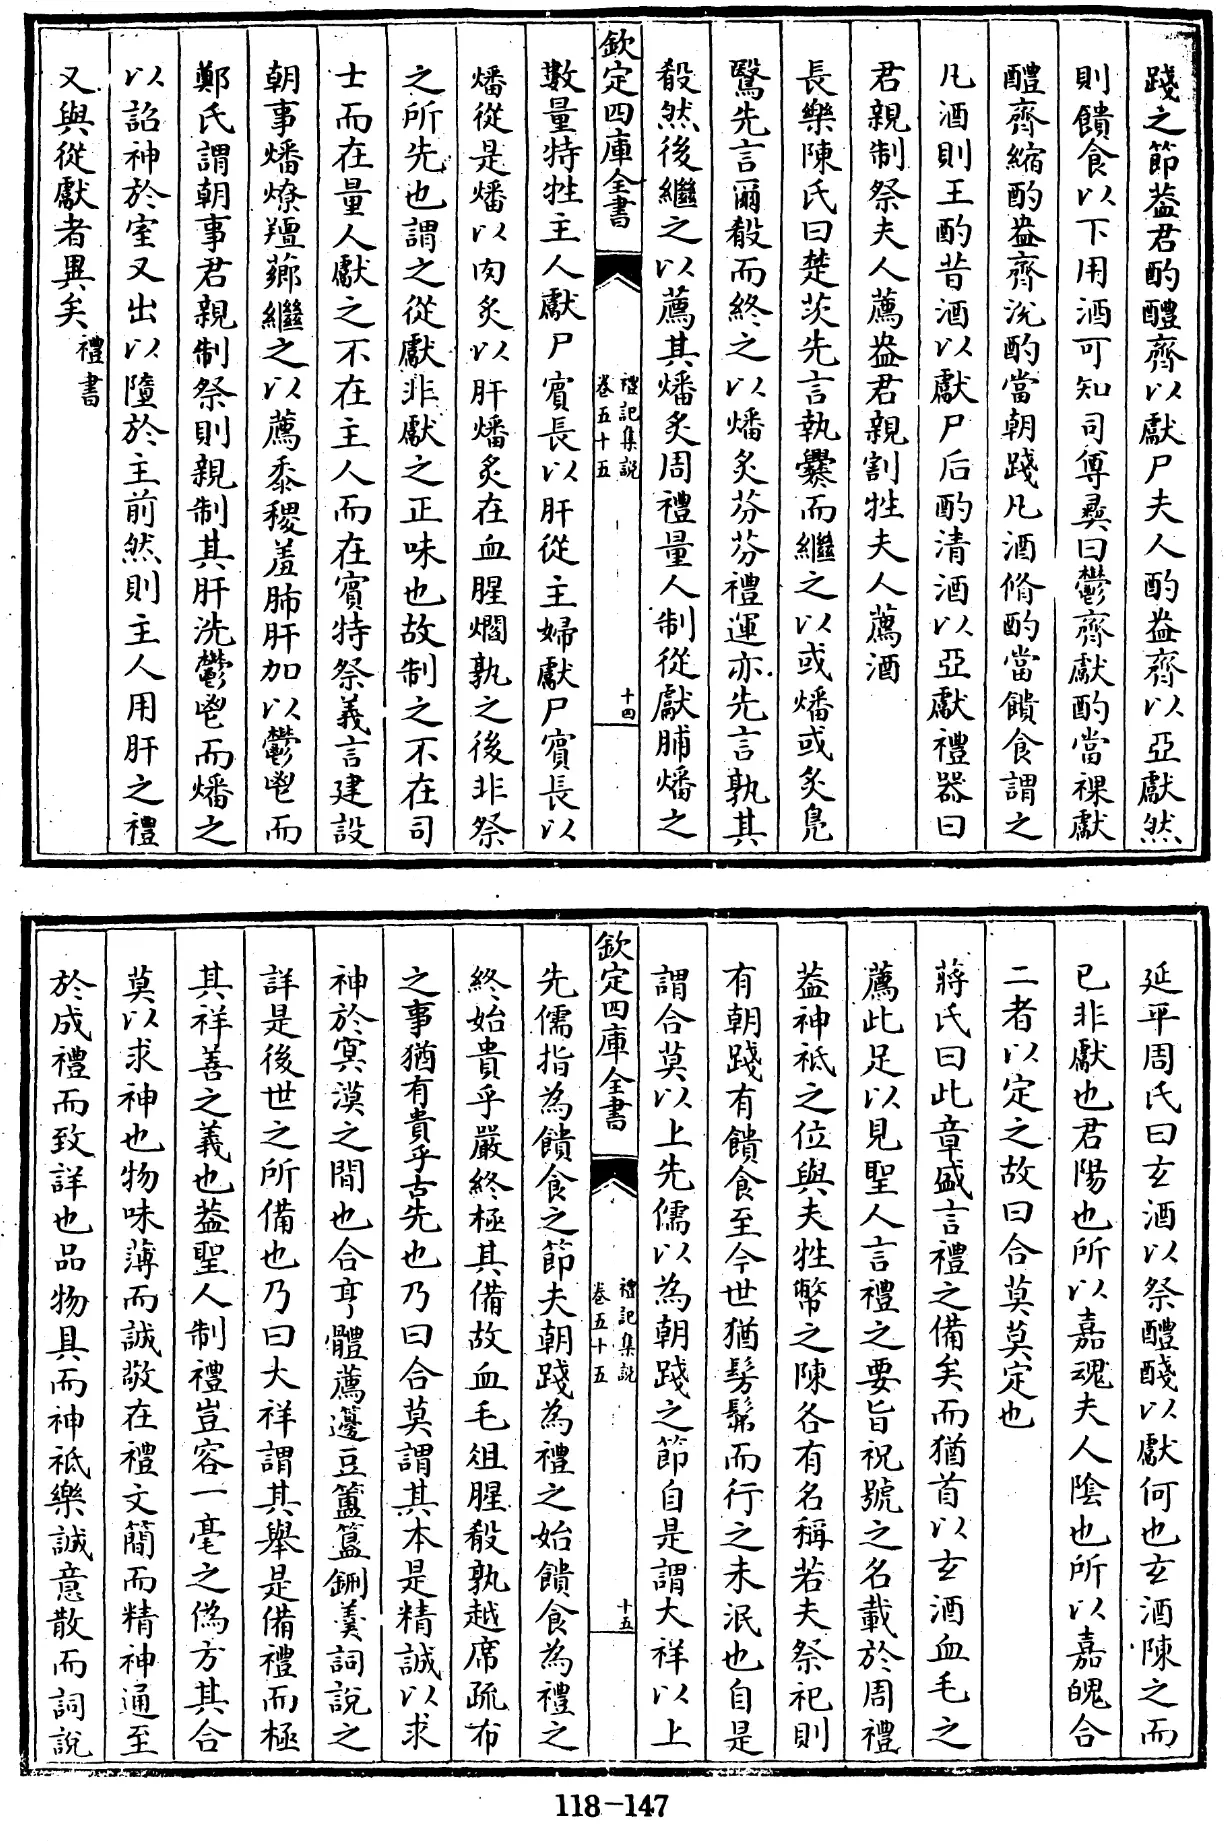 踐之節葢君酌醴齊以獻尸夫人酌盎齊以亞獻然
則饋食以下用酒可知司尊彞曰鬱齊獻酌當祼獻
醴齊縮酌盎齊涗酌當朝踐凡酒脩酌當饋食謂之
凡酒則王酌昔酒以獻尸后酌清酒以亞獻禮器曰
君親制祭夫人薦盎君親割牲夫人薦酒
長樂陳氏曰楚茨先言執爨而繼之以或燔或炙鳬
鷖先言爾殽而終之以燔炙芬芬禮運亦先言孰其
殽然後繼之以薦其燔炙周禮量人制從獻脯燔之
欽定四庫全書
禮記集說
卷五十五
十四
數量特牲主人獻尸賓長以肝從主婦獻尸賓長以
燔從是燔以肉炙以肝燔炙在血腥爓孰之後非祭
之所先也謂之從獻非獻之正味也故制之不在司
士而在量人獻之不在主人而在賓特祭義言建設
朝事燔燎羶薌繼之以薦黍稷羞肺肝加以鬱鬯而
鄭氏謂朝事君親制祭則親制其肝洗鬱鬯而燔之
以詔神於室又出以墮於主前然則主人用肝之禮
又與從獻者異矣 禮書
延平周氏曰玄酒以祭醴醆以獻何也玄酒陳之而
已非獻也君陽也所以嘉魂夫人陰也所以嘉魄合
二者以定之故曰合莫莫定也
蔣氏曰此章盛言禮之備矣而猶首以玄酒血毛之
薦此足以見聖人言禮之要旨祝號之名載於周禮
葢神祗之位與夫牲幣之陳各有名稱若夫祭祀則
有朝踐有饋食至今世猶髣髴而行之未泯也自是
謂合莫以上先儒以為朝踐之節自是謂大祥以上
欽定四庫全書
禮記集說
卷五十五
十五
先儒指為饋食之節夫朝踐為禮之始饋食為禮之
終始貴乎嚴終極其備故血毛俎腥殽孰越席疏布
之事猶有貴乎古先也乃曰合莫謂其本是精誠以求
神於冥漠之間也合亨體薦籩豆簠簋鉶羮詞說之
詳是後世之所備也乃曰大祥謂其舉是備禮而極
其祥善之義也葢聖人制禮豈容一毫之偽方其合
莫以求神也物味薄而誠敬在禮文簡而精神通至
於成禮而致詳也品物具而神祗樂誠意散而詞說
118-147